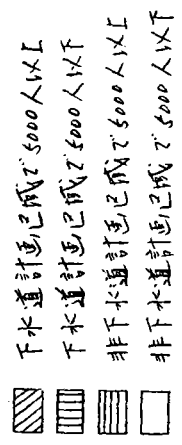 下水道計画區域で5000人以上
下水道計画區域で5000人以下
非下水道計画區域で5000人以上
非下水道計画區域で5000人以下